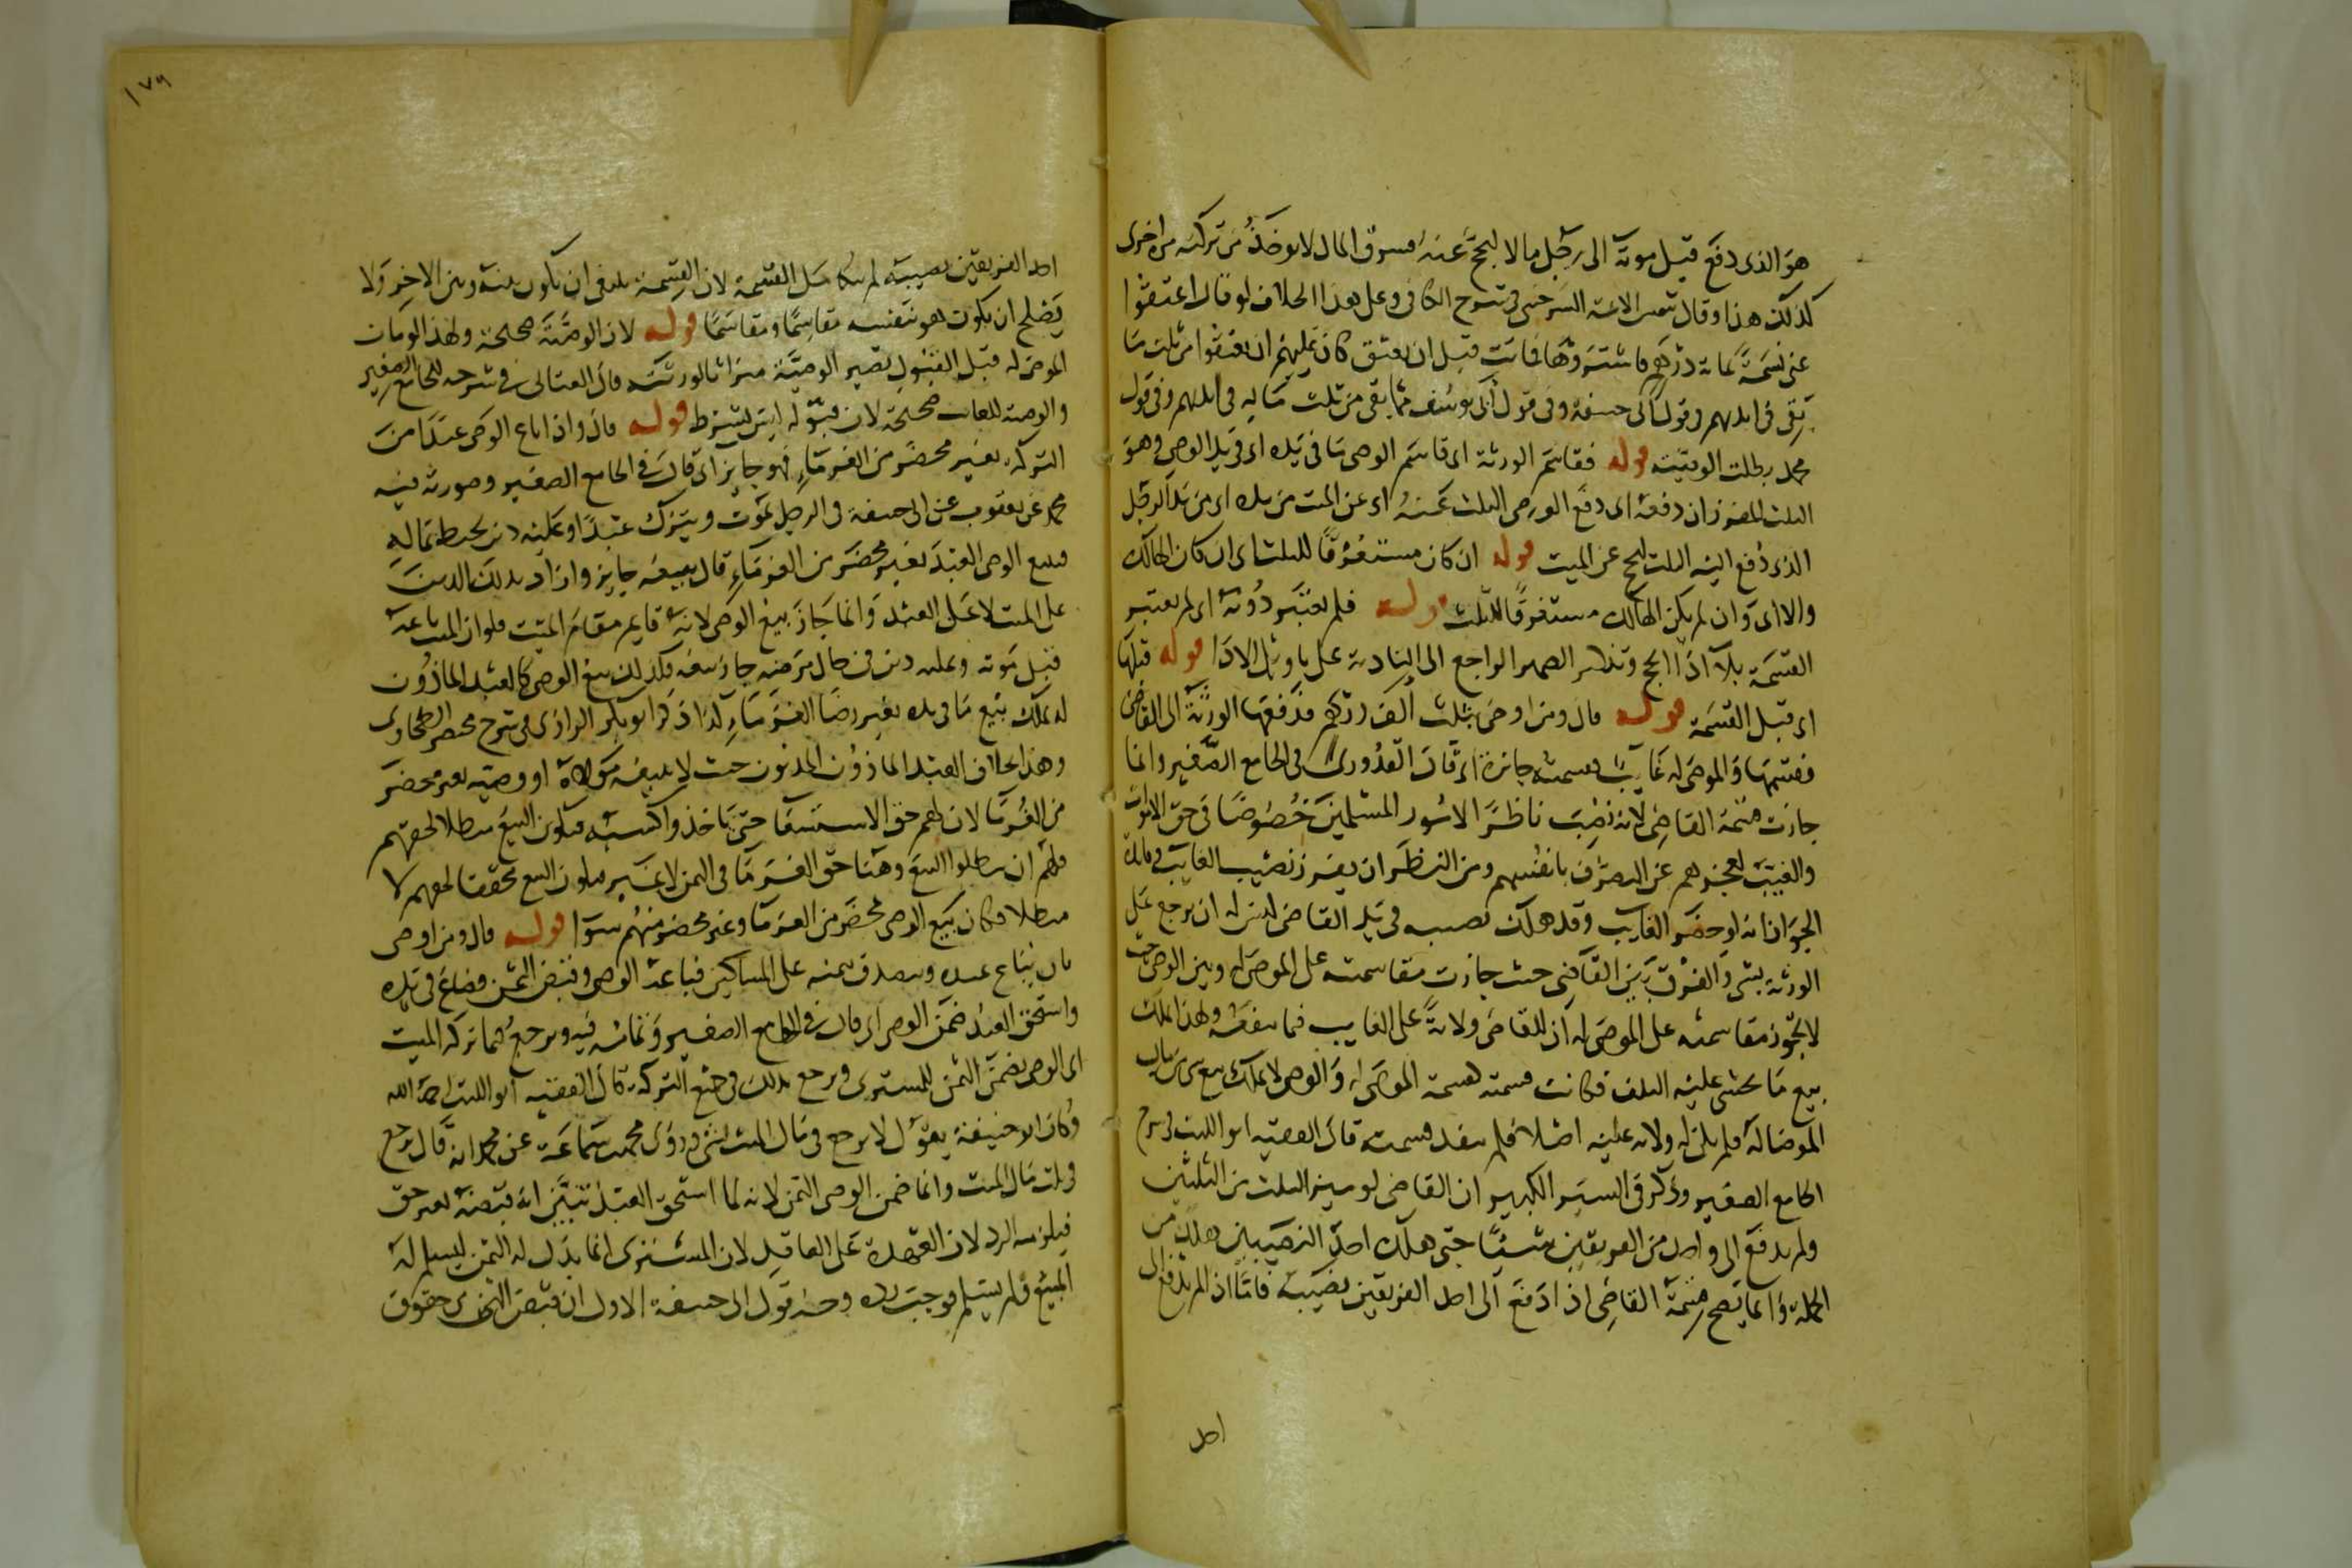 هو الذى دفع قبل موته الى رجل مالا ليحج عنه فسرق المال لا يوخذ من تركته مرة اخرى
كذلك هذا وقال شمس الائمة السرخسى فى شرح الكافى وعلى هذا الخلاف لو قال اعتقوا
عنى نسمة بمائة درهم فاشتروها فماتت قبل ان يعتق كان عليهم ان يعتقوا من ثلث ما
بقى فى ايديهم فى قول ابى حنيفة وفى قول ابى يوسف مما بقى من ثلث ماله فى ايديهم وفى قول
محمد بطلت الوصية قوله فقاسم الورثة اى قاسم الوصى ما فى يده اى فى يد الوصى وهو
الثلث المفرز ان دفعه اى دفع الوصى الثلث عنه اى عن الميت من يده اى من يد الرجل
الذى دفع اليه الثلث ليحج عن الميت قوله ان كان مستغرقا للثلث اى ان كان الهالك
والا اى وان لم يكن الهالك مستغرقا للثلث قوله فلم يعتبر دونه اى لم يعتبر
القسمة بلا اذا الحج وتذكير الضمير الراجع الى التادية على تاويل الادا قوله قبلها
اى قبل القسمة قوله قال ومن اوصى بثلث الف درهم فدفعها الورثة الى القاضى
فقسمها والموصى له غايب فقسمته جائزة اى قال القدورى فى الجامع الصغير وانما
جازت قسمة القاضى لانه نصب ناظرا لامور المسلمين خصوصا فى حق الاموات
والغيب لعجزهم عن التصرف بانفسهم ومن النظر ان يفرز نصيب الغايب فى فايدة
الجواز انه لو حضر الغايب وقد هلك نصيبه فى يد القاضى ليس له ان يرجع على
الورثة بشى والفرق بين القاضى حيث جازت مقاسمته على الموصى له وبين الوصى حيث
لا يجوز مقاسمته على الموصى له ان للقاضى ولاية على الغايب فيما ينفعه ولهذا يملك
بيع ما يخشى عليه التلف فكانت قسمته كقسمة الموصى له والوصى لا يملك بيع شى من مال
الموصا له فلم يكن له ولاية عليه اصلا فلم ينفذ قسمته قال الفقيه ابو الليث فى شرح
الجامع الصغير وذكر فى السير الكبير ان القاضى لو ميز الثلث من الثلثين
ولم يدفع الى واحد من الفريقين شيئا حتى هلك احد النصيبين هلك من
الجملة وانما يصح قسمة القاضى اذا دفع الى احد الفريقين نصيبه فاما اذا لم يدفع الى
احد
١٧٩
احد الفريقين نصيبه لم يتكامل القسمة لان القسمة ينبغى ان يكون بينه وبين الاخر ولا
يصلح ان يكون هو بنفسه مقاسما ومقاسما قوله لان الوصية صحيحة ولهذا لو مات
الموصى له قبل القبول تصير الوصية ميراثا لورثته قال العتابى فى شرحه للجامع الصغير
والوصية للغايب صحيحة لان قبوله ليس بشرط قوله قال واذا باع الوصى عبدا من
التركة بغير محضر من الغرماء فهو جايز اى قال فى الجامع الصغير وصورته فيه
محمد عن يعقوب عن ابى حنيفة فى الرجل يموت ويترك عبدا وعليه دين يحيط بماله
فيبيع الوصى العبد بغير محضر من الغرماء قال بيعه جايز
على الميت لا على العبد وانما جاز بيع الوصى لانه قايم مقام الميت فلو ان الميت باعه
قبل موته وعليه دين فى حال مرضه جاز بيعه فكذلك بيع الوصى كالعبد الماذون
له يملك بيع ما فى يده بغير رضا الغرماء كذا ذكر ابو بكر الرازى فى شرح مختصر الطحاوى
وهذا بخلاف العبد الماذون المديون حيث لا يبيعه مولاه او وصيه بغير محضر
من الغرما لان لهم حق الاستسعا حتى ياخذوا كسبه فيكون البيع مبطلا لحقهم
فلهم ان يبطلوا البيع وهنا حق الغرما فى الثمن لا غير فيكون البيع محققا لحقهم لا
مبطلا فكان بيع الوصى بمحضر من الغرما وغير محضر منهم سوا قوله قال ومن اوصى
بان يباع عبده ويتصدق بثمنه على المساكين فباعه الوصى وقبض الثمن فضاع فى يده
واستحق العبد ضمن الوصى اى قال فى الجامع الصغير وتمامه فيه ويرجع فيما تركه الميت
اى الوصى يضمن الثمن للمشترى ويرجع بذلك فى جميع التركة قال الفقيه ابو الليث رحمه الله
وكان ابو حنيفة يقول لا يرجع فى مال الميت بشى وروى محمد بن سماعة عن محمد انه قال يرجع
فى ثلث مال الميت وانما ضمن الوصى الثمن لانه لما استحق العبد تبين انه قبضه بغير حق
فيلزمه الرد لان العهدة على العاقد لان المشترى انما بذل له الثمن ليسلم له
المبيع ولم يسلم فوجب رده وجه قول ابى حنيفة الاول ان قبض الثمن من حقوق